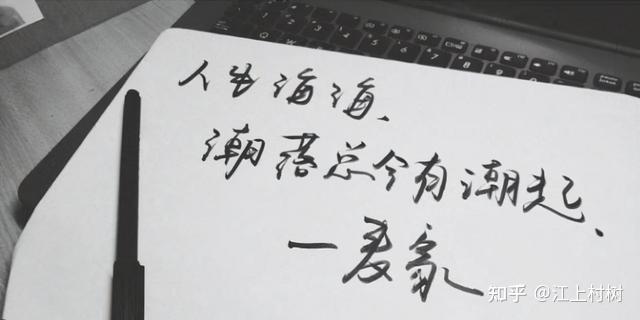 人生海海、
潮落总会有潮起、
—麦家
知乎 @江上村树